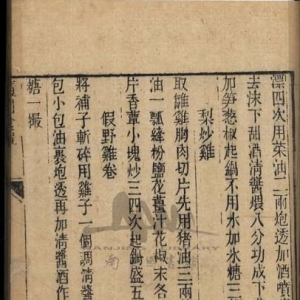 漂四次用菜油二兩炮透加酒噴
去沫下甜酒清醬煨八分功成下
加笋葱椒起鍋不用水加氷糖三
梨炒雞
取雛雞胸肉切片先用猪油三兩
油一瓢縴粉鹽花薑汁花椒末各
片香蕈小塊炒三四次起鍋盛五
假野雞卷
將脯子斬碎用雞子一個調清醬
包小包油裏炮透再加清醬酒作
糖一撮